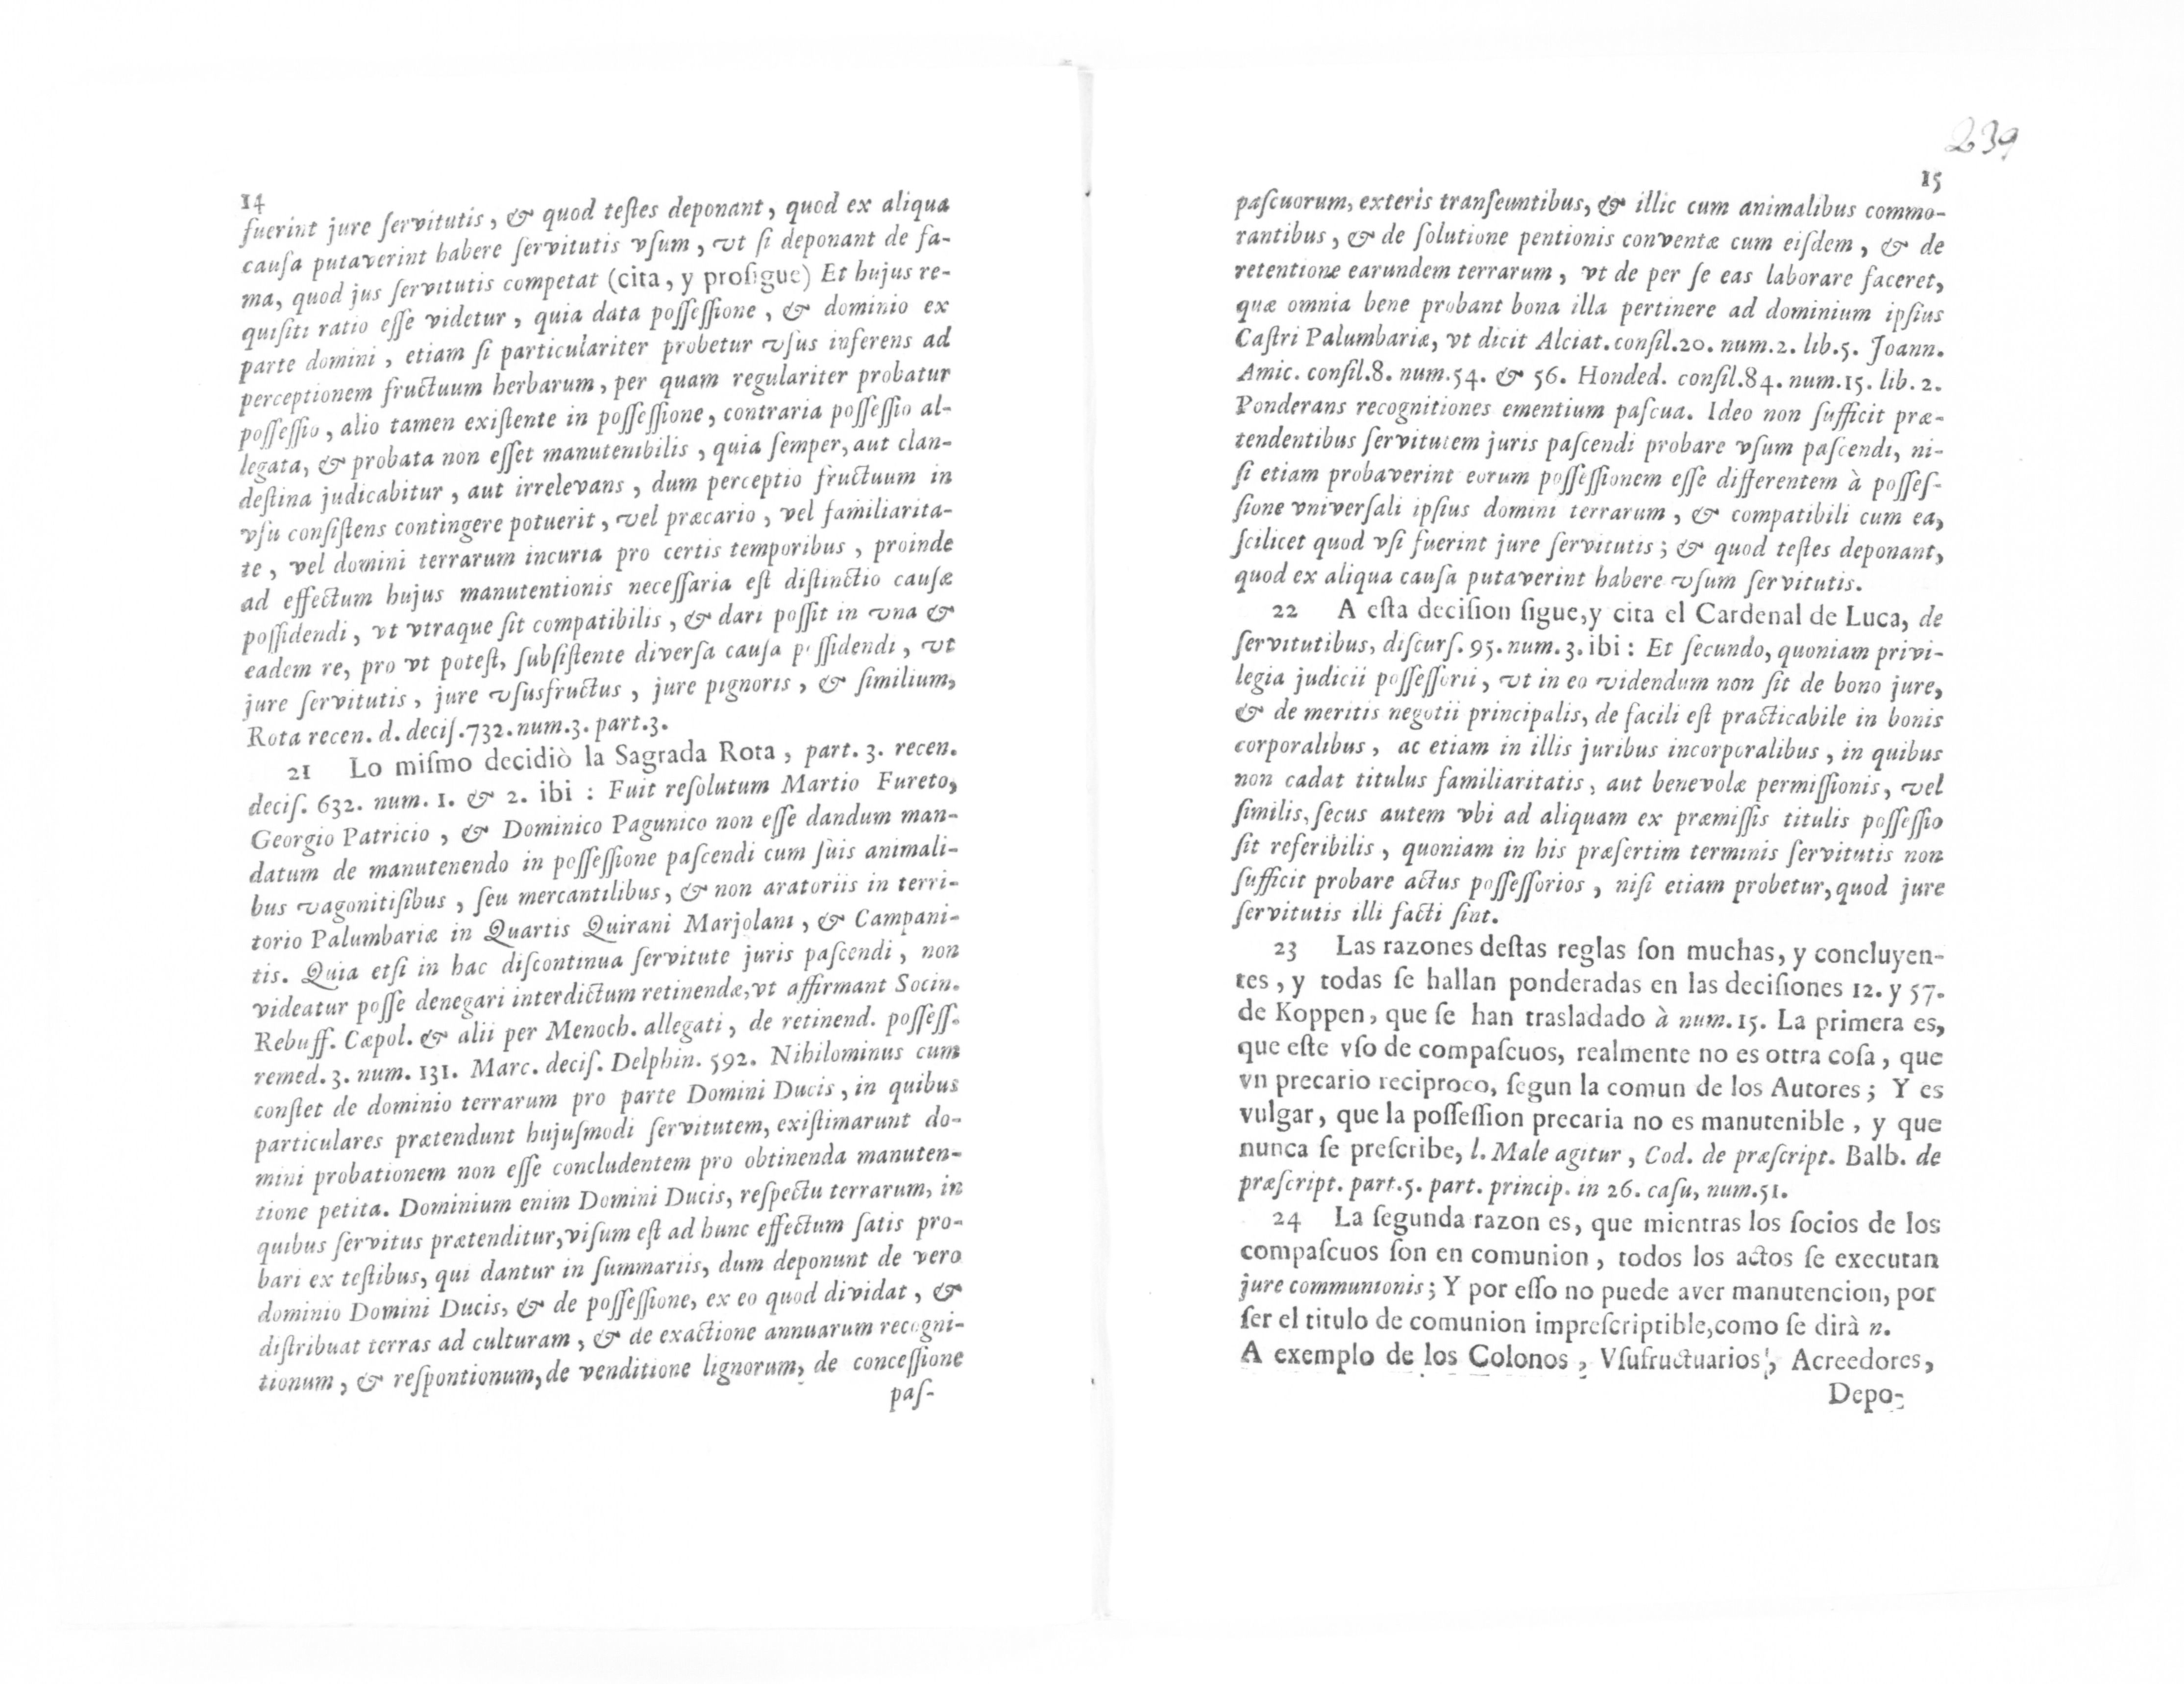 14
fuerint jure ſervitutis, & quod teſtes deponant, quod ex aliqua
cauſa putaverint habere ſervitutis vſum, vt ſi deponant de fa-
ma, quod jus ſervitutis competat (cita, y proſigue) Et hujus re-
quiſiti ratio eſſe videtur, quia data poſſeſſione, & dominio ex
parte domini, etiam ſi particulariter probetur vſus inferens ad
perceptionem fructuum herbarum, per quam regulariter probatur
poſſeſſio, alio tamen exiſtente in poſſeſſione, contraria poſſeſſio al-
legata, & probata non eſſet manutenibilis, quia ſemper, aut clan-
deſtina judicabitur, aut irrelevans, dum perceptio fructuum in
vſu conſiſtens contingere potuerit, vel præcario, vel familiarita-
te, vel domini terrarum incuria pro certis temporibus, proinde
ad effectum hujus manutentionis neceſſaria eſt diſtinctio cauſæ
poſſidendi, vt vtraque ſit compatibilis, & dari poſſit in vna &
eadem re, pro vt poteſt, ſubſiſtente diverſa cauſa p ſſidendi, vt
jure ſervitutis, jure vſusfructus, jure pignoris, & ſimilium,
Rota recen. d. deciſ.732.num.3. part.3.
21 Lo miſmo decidiò la Sagrada Rota, part. 3. recen.
deciſ. 632. num. 1. & 2. ibi : Fuit reſolutum Martio Fureto,
Georgio Patricio, & Dominico Pagunico non eſſe dandum man-
datum de manutenendo in poſſeſſione paſcendi cum ſuis animali-
bus vagonitiſibus, ſeu mercantilibus, & non aratoriis in terri-
torio Palumbariæ in Quartis Quirani Marjolani, & Campani-
tis. Quia etſi in hac diſcontinua ſervitute juris paſcendi, non
videatur poſſe denegari interdictum retinendæ, vt affirmant Socin.
Rebuff. Cæpol. & alii per Menoch. allegati, de retinend. poſſeſſ.
remed. 3. num. 131. Marc. deciſ. Delphin. 592. Nihilominus cum
conſtet de dominio terrarum pro parte Domini Ducis, in quibus
particulares prætendunt hujuſmodi ſervitutem, exiſtimarunt do-
mini probationem non eſſe concludentem pro obtinenda manuten-
tione petita. Dominium enim Domini Ducis, reſpectu terrarum, in
quibus ſervitus prætenditur, viſum eſt ad hunc effectum ſatis pro-
bari ex teſtibus, qui dantur in ſummariis, dum deponunt de vero
dominio Domini Ducis, & de poſſeſſione, ex eo quod dividat, &
diſtribuat terras ad culturam, & de exactione annuarum recogni-
tionum, & reſpontionum, de venditione lignorum, de conceſſione
paſ-
239
15
paſcuorum, exteris tranſeuntibus, & illic cum animalibus commo-
rantibus, & de ſolutione pentionis conventæ cum eiſdem, & de
retentione earundem terrarum, vt de per ſe eas laborare faceret,
quæ omnia bene probant bona illa pertinere ad dominium ipſius
Caſtri Palumbariæ, vt dicit Alciat. conſil.20. num.2. lib.5. Joann.
Amic. conſil.8. num.54. & 56. Honded. conſil.84. num.15. lib. 2.
Ponderans recognitiones ementium paſcua. Ideo non ſufficit præ-
tendentibus ſervitutem juris paſcendi probare vſum paſcendi, ni-
ſi etiam probaverint eorum poſſeſſionem eſſe differentem à poſſeſ-
ſione vniverſali ipſius domini terrarum, & compatibili cum ea,
ſcilicet quod vſi fuerint jure ſervitutis; & quod teſtes deponant,
quod ex aliqua cauſa putaverint habere vſum ſervitutis.
22 A eſta deciſion ſigue, y cita el Cardenal de Luca, de
ſervitutibus, diſcurſ. 95. num. 3. ibi : Et ſecundo, quoniam privi-
legia judicii poſſeſſorii, vt in eo videndum non ſit de bono jure,
& de meritis negotii principalis, de facili eſt practicabile in bonis
corporalibus, ac etiam in illis juribus incorporalibus, in quibus
non cadat titulus familiaritatis, aut benevolæ permiſſionis, vel
ſimilis, ſecus autem vbi ad aliquam ex præmiſſis titulis poſſeſſio
ſit referibilis, quoniam in his præſertim terminis ſervitutis non
ſufficit probare actus poſſeſſorios, niſi etiam probetur, quod jure
ſervitutis illi facti ſint.
23 Las razones deſtas reglas ſon muchas, y concluyen-
tes, y todas ſe hallan ponderadas en las deciſiones 12. y 57.
de Koppen, que ſe han trasladado à num.15. La primera es,
que eſte vſo de compaſcuos, realmente no es ottra coſa, que
vn precario reciproco, ſegun la comun de los Autores; Y es
vulgar, que la poſſeſſion precaria no es manutenible, y que
nunca ſe preſcribe, l. Male agitur, Cod. de præſcript. Balb. de
præſcript. part.5. part. princip. in 26. caſu, num.51.
24 La ſegunda razon es, que mientras los ſocios de los
compaſcuos ſon en comunion, todos los actos ſe executan
jure communionis; Y por eſſo no puede aver manutencion, por
ſer el titulo de comunion impreſcriptible, como ſe dirà n.
A exemplo de los Colonos, Vſufructuarios, Acreedores,
Depo-